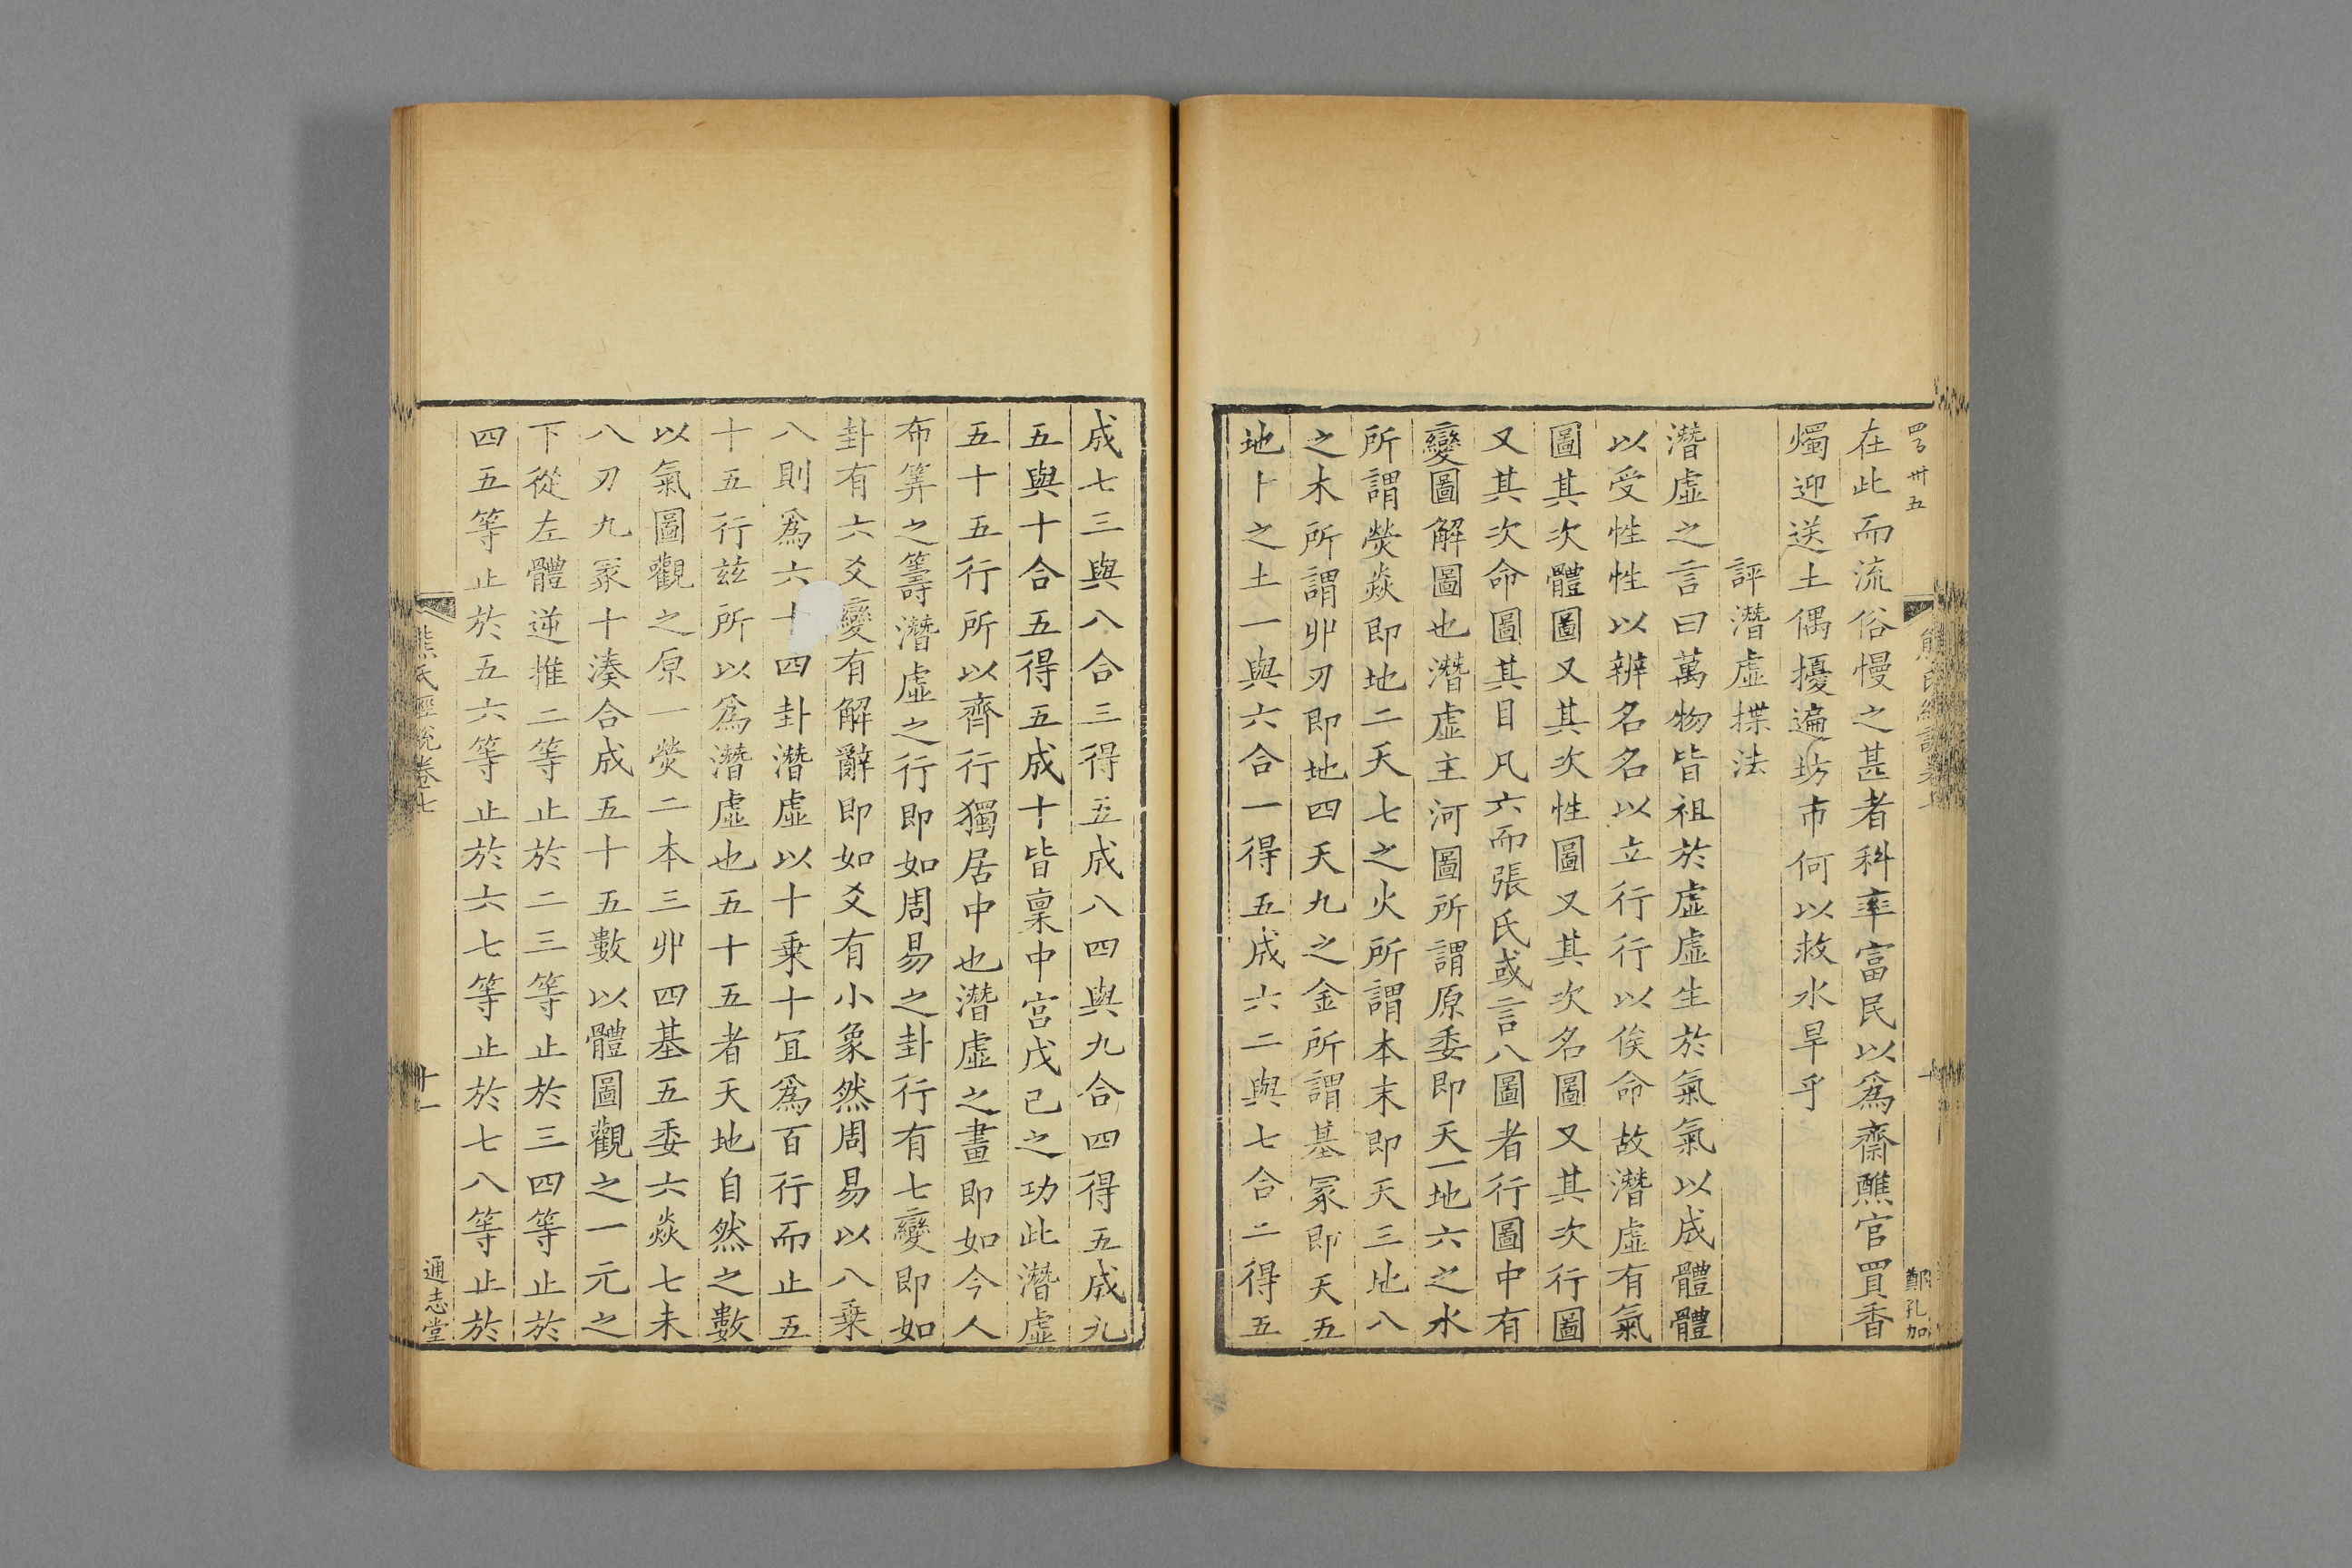 在此而流俗慢之甚者科率富民以爲齋醮官買香
燭迎送土偶擾遍坊市何以救水旱乎
評潛虛揲法
潛虛之言曰萬物皆祖於虛虛生於氣氣以成體體
以受性性以辨名名以立行行以俟命故潛虛有氣
圖其次體圖又其次性圖又其次名圖又其次行圖
又其次命圖其目凡六而張氏或言八圖者行圖中有
變圖解圖也潛虛主河圖所謂原委即天一地六之水
所謂熒焱即地二天七之火所謂本末即天三地八
之木所謂丱刃即地四天九之金所謂基冢即天五
地十之土一與六合一得五成六二與七合二得五
鄭孔加
成七三與八合三得五成八四與九合四得五成九
五與十合五得五成十皆稟中宮戊己之功此潛虛
五十五行所以齊行獨居中也潛虛之畫即如今人
布筭之籌潛虛之行即如周易之卦行有七變即如
卦有六爻變有解辭即如爻有小象然周易以八乗
八則爲六十四卦潛虛以十乗十宜爲百行而止五
十五行兹所以爲潛虛也五十五者天地自然之數
以氣圖觀之原一熒二本三丱四基五委六焱七末
八刃九冢十湊合成五十五數以體圖觀之一元之
下從左體逆推二等止於二三等止於三四等止於
四五等止於五六等止於六七等止於七八等止於
熊氏經說卷七
十一
通志堂